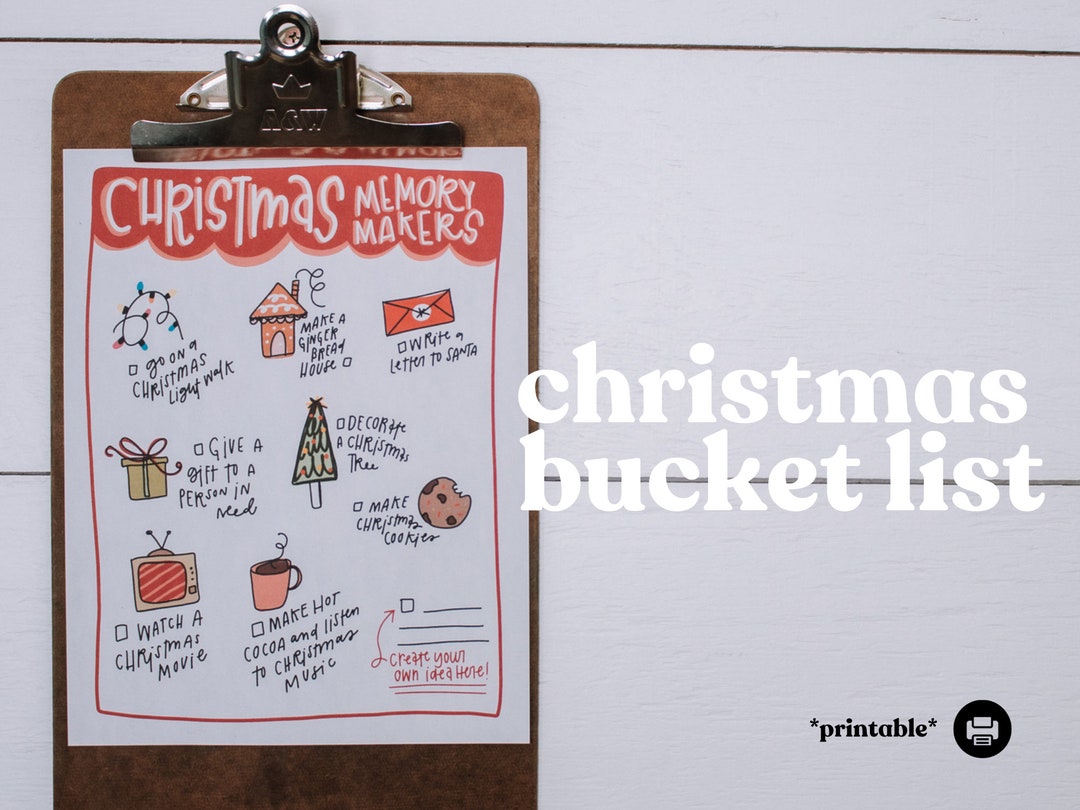 CHRiSTmaS MEMORY
MAKERS
go on a
CHRiSTMAS
light walk
MAKE A
GiNGER
BREAd
HOUSE
WRiTE a
LETTER to SANTA
GiVE A
gift to a
PERSON iN
need
DECORATE
A CHRiSTmas
TREE
MAKE
CHRiSTmas
COOKiES
WATCH A
CHRiSTmAS
MOViE
MAKE HOT
COCOA and listen
to CHRiSTmas
MUSiC
CREATE your
own idea HERE!
christmas
bucket list
*printable*